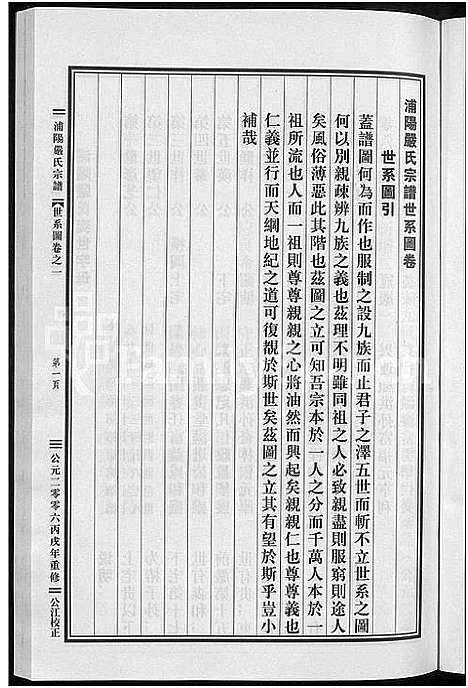 浦陽嚴氏宗譜世系圖卷
世系圖引
蓋譜圖何為而作也服制之設九族而止君子之澤五世而斬不立世系之圖
何以別親疎辨九族之義也茲理不明雖同祖之人必致親盡則服窮則途人
矣風俗薄惡此其階也茲圖之立可知吾宗本於一人之分而千萬人本於一
祖所流也人而一祖則尊尊親親之心將油然而興起矣親親仁也尊尊義也
仁義並行而天綱地紀之道可復覩於斯世矣茲圖之立其有望於斯乎豈小
補哉
浦陽嚴氏宗譜 【世系圖卷之一
第一頁
公元二零零六丙戌年重修
公江校正